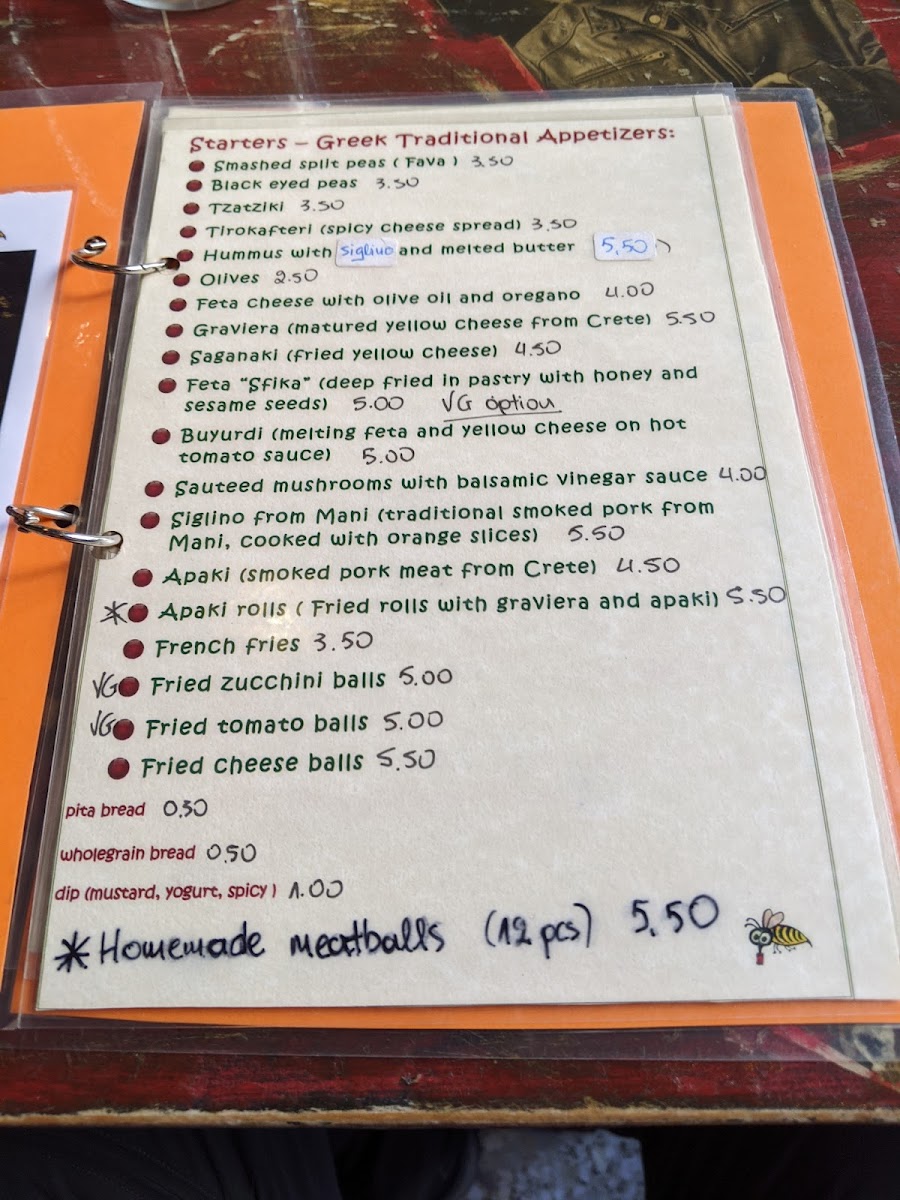 Starters – Greek Traditional Appetizers:
Smashed split peas ( Fava ) 3.50
Black eyed peas 3.50
Tzatziki 3.50
Tirokafteri (spicy cheese spread) 3.50
Hummus with siglino and melted butter 5,50 )
Olives 2.50
Feta cheese with olive oil and oregano 4.00
Graviera (matured yellow cheese from Crete) 5.50
Saganaki (fried yellow cheese) 4.50
Feta "Sfika" (deep fried in pastry with honey and
sesame seeds) 5.00 VG option
Buyurdi (melting feta and yellow cheese on hot
tomato sauce) 5.00
Sauteed mushrooms with balsamic vinegar sauce 4.00
Siglino from Mani (traditional smoked pork from
Mani, cooked with orange slices) 5.50
Apaki (smoked pork meat from Crete) 4.50
* Apaki rolls ( Fried rolls with graviera and apaki) 5.50
French fries 3.50
VG Fried zucchini balls 5.00
VG Fried tomato balls 5.00
Fried cheese balls 5.50
pita bread 0,50
wholegrain bread 0,50
dip (mustard, yogurt, spicy ) 1.00
* Homemade meatballs (12 pcs) 5,50